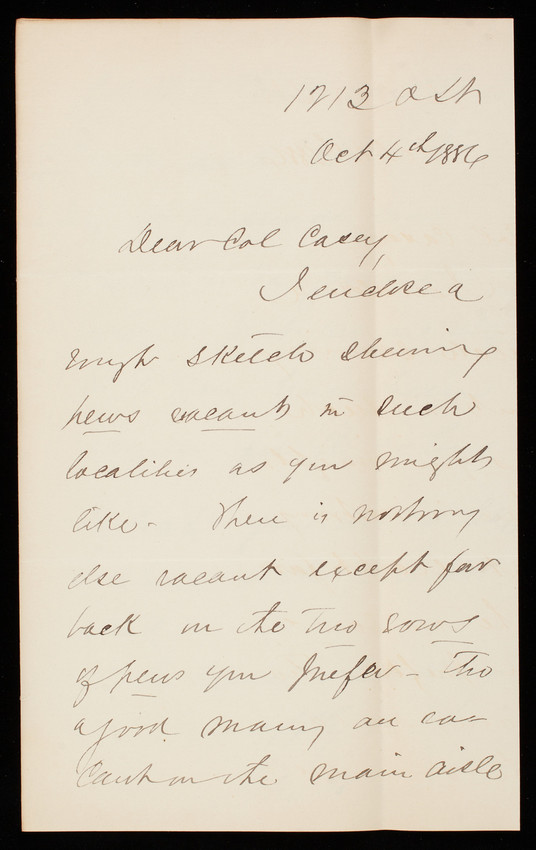 1713 Q St
Oct 4th 1886
Dear Col Casey,
I enclose a
rough sketch showing
pews vacant in such
localities as you might
like - There is nothing
else vacant except far
back in the two rows
of pews you prefer - Tho
a good many are va-
cant on the main aisle